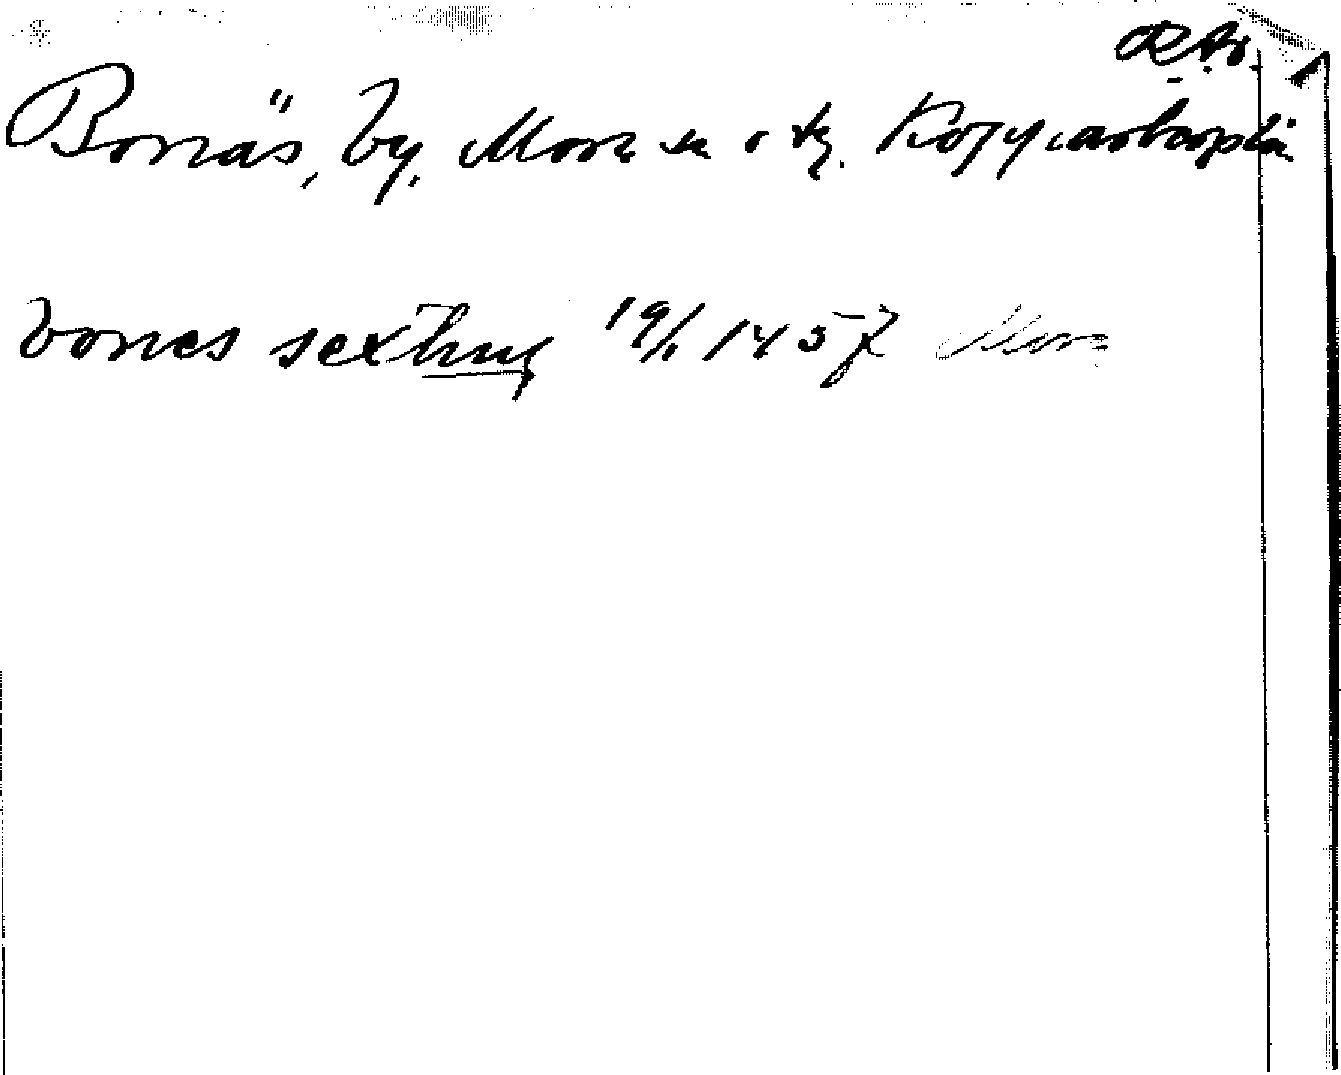 R.A.
Bonäs, by, Mora sn o tg. Kopparbergs län
bones sexting 19/1 1457 Mora